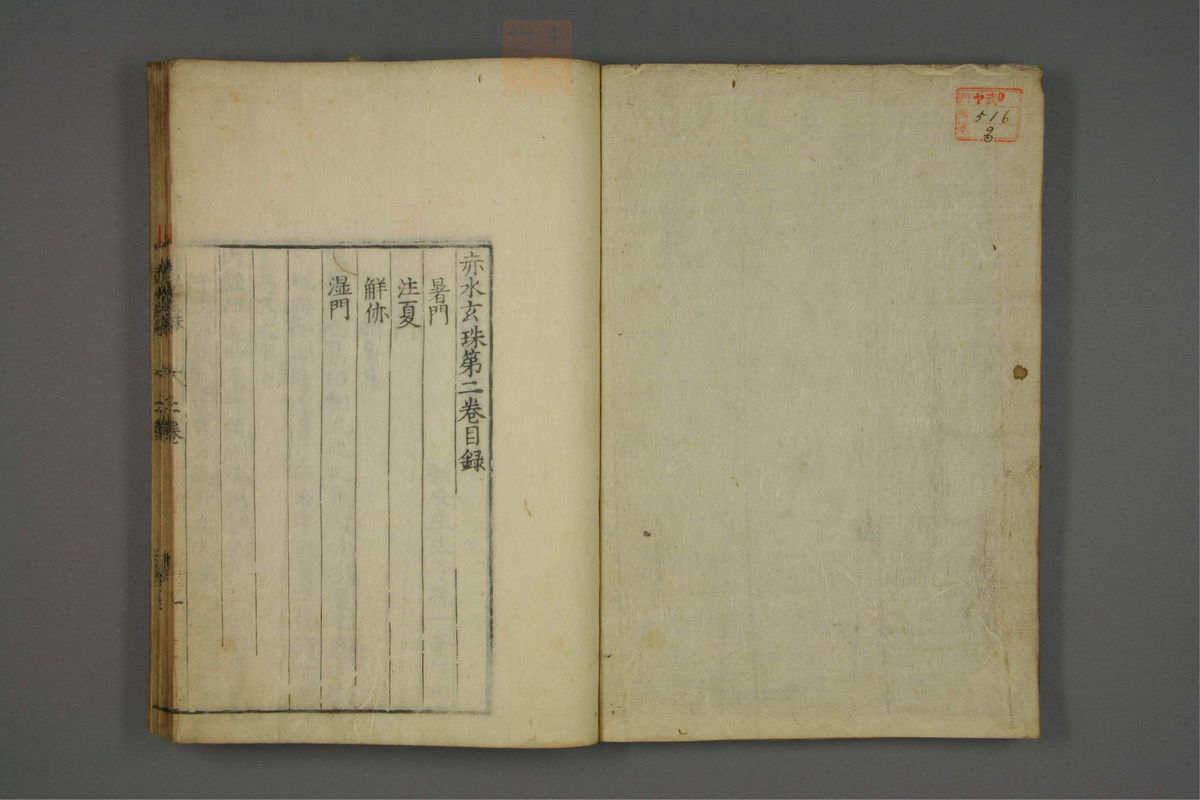 516
赤水玄珠第二卷目録
暑門
注夏
解㑊
湿門